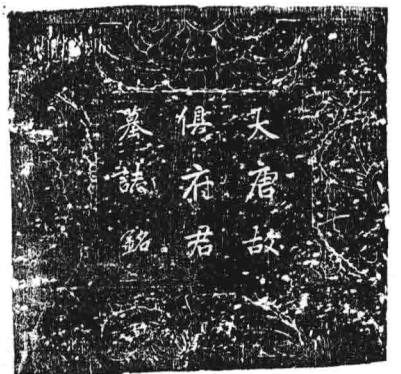 大唐故
俱府君
墓誌銘